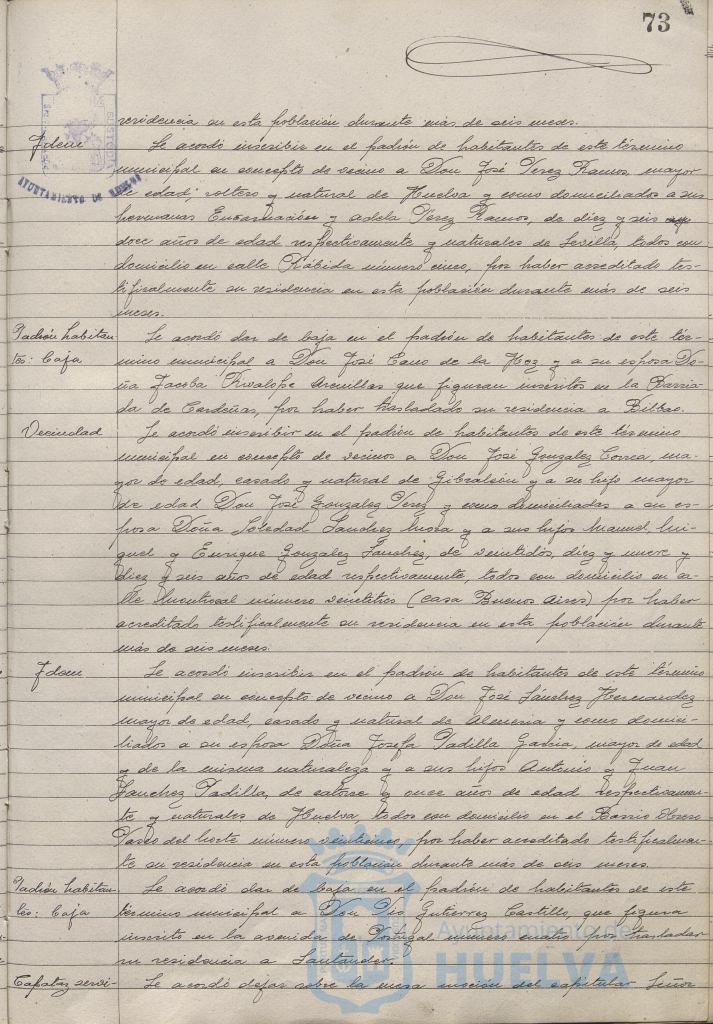 73
residencia en esta población durante más de seis meses.
Idem Se acordó inscribir en el padrón de habitantes de este término
municipal en concepto de vecino a Don José Perez Ramos, mayor
de edad, soltero y natural de Huelva y como domiciliados a sus
hermanas Encarnación y Adela Perez Ramos, de diez y seis y
doce años de edad respectivamente y naturales de Sevilla, todos con
domicilio en calle Rábida número cinco, por haber acreditado tes-
tificalmente su residencia en esta población durante más de seis
meses.
Padrón habitan- Se acordó dar de baja en el padrón de habitantes de este tér-
tes: baja mino municipal a Don José Cano de la Hez y a su esposa Do-
ña Jacoba que figuran inscritos en la Barria-
da de Cardeñas, por haber trasladado su residencia a Bilbao.
Vecindad Se acordó inscribir en el padrón de habitantes de este término
municipal en concepto de vecinos a Don José Gonzalez Correa, ma-
yor de edad, casado y natural de Gibraleón y a su hijo mayor
de edad Don José Gonzalez Perez y como domiciliadas a su es-
posa Doña Soledad Sanchez y a sus hijos Manuel, Mi-
guel y Enrique Gonzalez Sanchez, de veintidós, diez y nueve y
diez y seis años de edad respectivamente, todos con domicilio en ca-
lle Montrocal número veintitres (Casa Buenos Aires) por haber
acreditado testificalmente su residencia en esta población durante
más de seis meses.
Idem Se acordó inscribir en el padrón de habitantes de este término
municipal en concepto de vecino a Don José Sánchez Hernandez
mayor de edad, casado y natural de Almeria y como domici-
liados a su esposa Doña Josefa Padilla Garcia, mayor de edad
y de la misma naturaleza y a sus hijos Antonio y Juan
Sanchez Padilla, de catorce y once años de edad respectivamen-
te y naturales de Huelva, todos con domicilio en el Barrio Obrero
Paseo del Norte número veinticinco, por haber acreditado testificalmen-
te su residencia en esta población durante más de seis meses.
Padrón habitan- Se acordó dar de baja en el padrón de habitantes de este
tes: baja término municipal a Don Pío Gutierrez Castillo, que figura
inscrito en la avenida de Portugal número cuatro por trasladar
su residencia a Santander.
Capataz servi- Se acordó dejar sobre la mesa moción del capitular Señor
AYUNTAMIENTO DE HUELVA
Ayuntamiento de
HUELVA